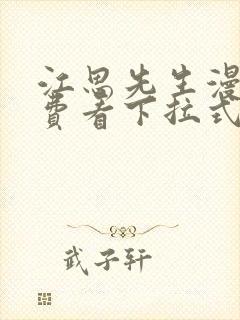 江恩先生漫
费看下拉式
武子轩